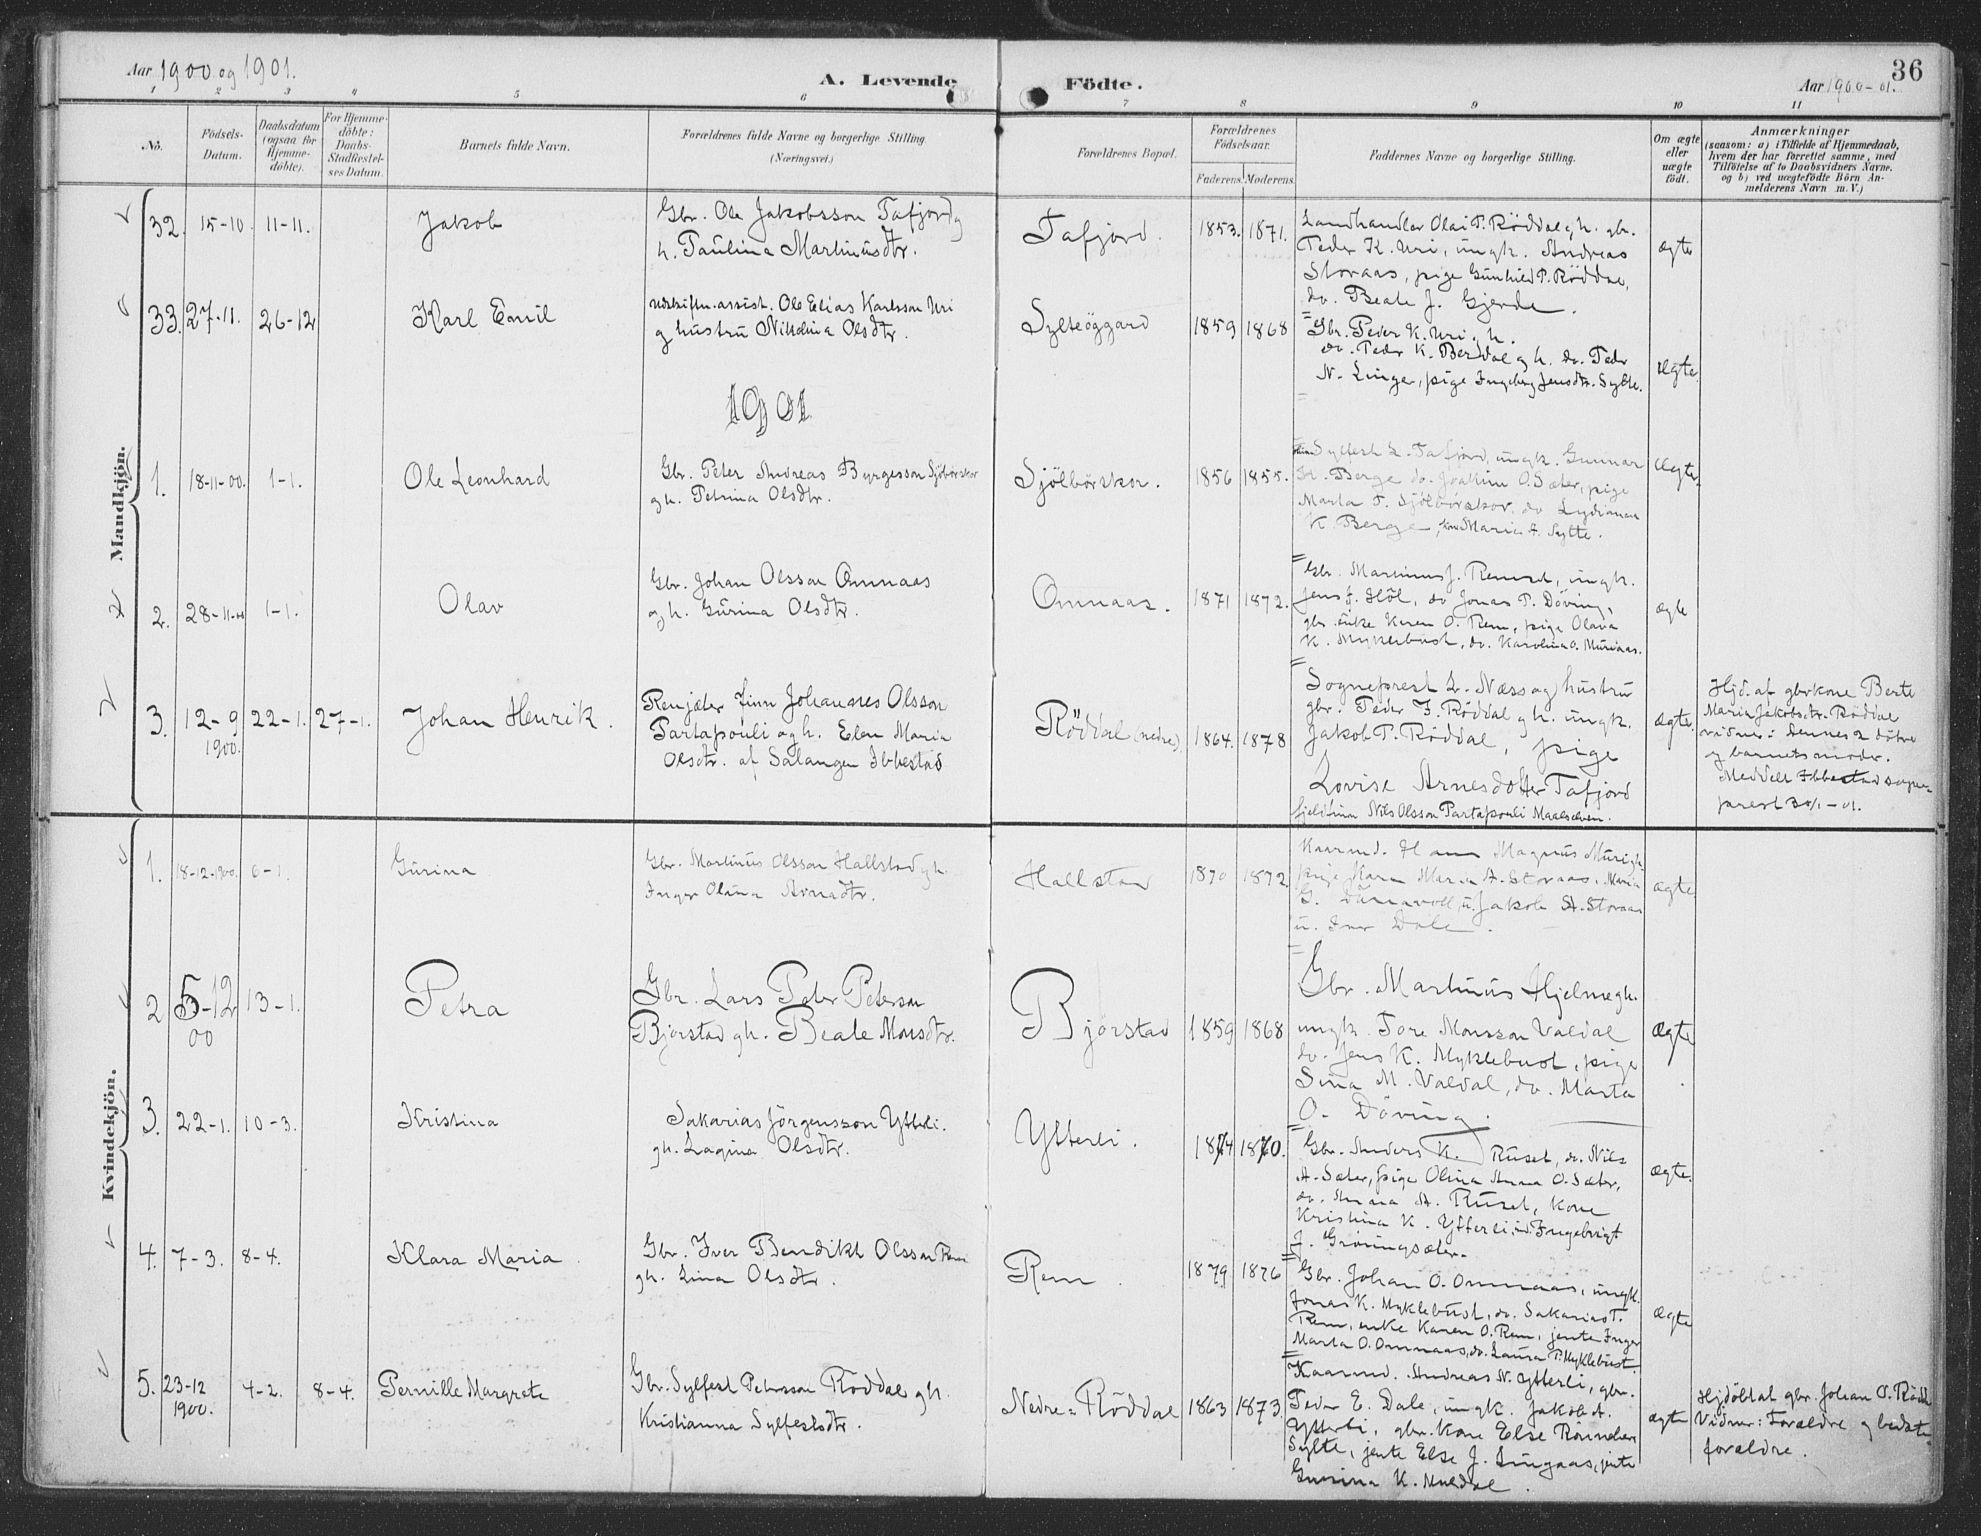 Aar 1900 og 1901.
A. Levende Födte.
Aar 1900-01.
36
1 2 3 4 5 6 7 8 9 10 11
No.
Födsels-Datum.
Daabsdatum (ogsaa for Hjemme-döbte).
For Hjemme-döbte: Daabs-Stadfæstel-ses Datum.
Barnets fulde Navn.
Forældrenes fulde Navne og borgerlige Stilling. (Næringsvei.)
Forældrenes Bopæl.
Forældrenes Födselsaar.
Faderens. Moderens.
Faddernes Navne og borgerlige Stilling.
Om ægte eller uægte födt.
Anmærkninger
(saasom: a) i Tilfælde af Hjemmedaab, hvem der har forrettet samme, med Tilföielse af to Daabsvidners Navne. og b) ved uægtefödte Börn An-melderens Navn m. V.)
Mandkjön.
32. 15-10. 11-11. Jakob
Gbr. Ole Jakobsson Tafjord g
h. Paulina Martinusdtr.
Tafjord. 1853. 1871.
Landhandler Olai P. Röddal g h. gbr.
Peder K. Uri, ungk. Andreas
Storaas, pige Gunhild P. Röddal,
do. Beate J. Gjerde.
ægte
33. 27-11. 26-12 Karl Emil
Ole Elias Karlsson Uri
g hustru Nikolina Olsdtr.
Sylteöggard 1859 1868
Gbr. Peder K. Uri g h.
do. Peder K. Berdal g h. do. Peder
N. Linger, pige Ingeborg Jensdtr. Sylte.
ægte.
1901
1. 18-11-00. 1-1. Ole Leonhard
Gbr. Peter Andreas Byrgesson Sjölbörskor
g h. Petrina Olsdtr.
Sjölbörskor. 1856 1855.
Sylfest L. Tafjord, ungk. Gunnar
K. Berge do. Joakim O. Sæter, pige
Marta P. Sjölbörskor. do Lydianna
K. Berge, Maria A. Sylte.
Ægte.
2. 28-11-00 1-1. Olav
Gbr. Johan Olsson Omnaas
g h. Gurina Olsdtr.
Omnaas. 1871 1872.
Gbr. Martinus J. Remsd, ungk.
Jens J. Höl, do Jonas P. Döving,
gbr. enke Karen O. Rem, pige Olava
K. Myklebust, do. Karolina O. Muriaas.
ægte
3. 12-9 1900. 22-1. 27-1. Johan Henrik.
Renjæter finn Johannes Olsson
Partapouli og h. Elen Maria
Olsdtr. af Salangen Ibbestad
Röddal (nedre) 1864. 1878
Sogneprest L. Næss og hustru
gbr. Peder J. Röddal g h. ungk.
Jakob P. Röddal, pige
Lovise Arnesdotter Tafjord
fjeldfinn Nils Olsson Partapouli Maalselven.
ægte.
Hjd. af gbrkone Berte
Maria Jakobsdtr. Röddal
vidner: dennes 2 döttre
g barnets moder.
Meddelt Ibbestad sogne-
prest 30/1-01.
Kvindekjön.
1. 18-12-1900. 6-1. Gurina
Gbr. Martinus Olsson Hallstad g h.
Inger Olina
Hallstad 1870 1872
Kaarmd. Hans Magnus
pige Kara Maria A. Storaas, Maria
G. u. Jakob A. Storaas
u. Iver Dale.
ægte.
2 5-12 00 13-1. Petra
Gbr. Lars Peter Peterson
Bjorstad g h. Beate Monsdtr.
Bjorstad 1859 1868
Gbr. Martinus Hjelme g h.
ungk. Tore Monsson Valdal
do. Jens K. Myklebust, pige
Sina M. Valdal, do. Marta
O. Döving.
Ægte.
3. 22-1. 10-3. Kristina
Sakarias Jörgensson Ytterli.
g h. Lagina Olsdtr.
Ytterli. 1874 1870.
Gbr. Anders K. Ruset, do. Nils
A. Sæter, pige Olina Anna O. Sæter,
do. Anna A. Ruset, kone
Kristina K. Ytterli, Ingebrigt
J. Gröningsæter.
ægte.
4. 7-3. 8-4. Klara Maria.
Gbr. Iver Bendikt Olsson Rem
g h. Lina Olsdtr.
Rem. 1879 1876
Gbr. Johan O. Omnaas, ungk.
Jonas K. Myklebust, do. Sakarias T.
Rem, enke Karen O. Rem, jente Inger
Marta O. Omnaas, do. Laura P. Myklebust
ægte
5. 23-12 1900. 4-2. 8-4. Pernille Margrete
Gbr. Sylfest Petersson Röddal g h.
Kristianna Sylfestsdtr.
Nedre-Röddal 1863 1873.
Kaarmd. Andreas N. Ytterli, gbr.
Peder E. Dale, ungk. Jakob A.
Ytterli, gbr. kone Else
Sylte, jente Else J. Lingaas, jente
Gurina K. Muldal.
ægte
Hjdöbt af gbr. Johan O. Rödd
Vidner: Forældre g bedste-
forældre.